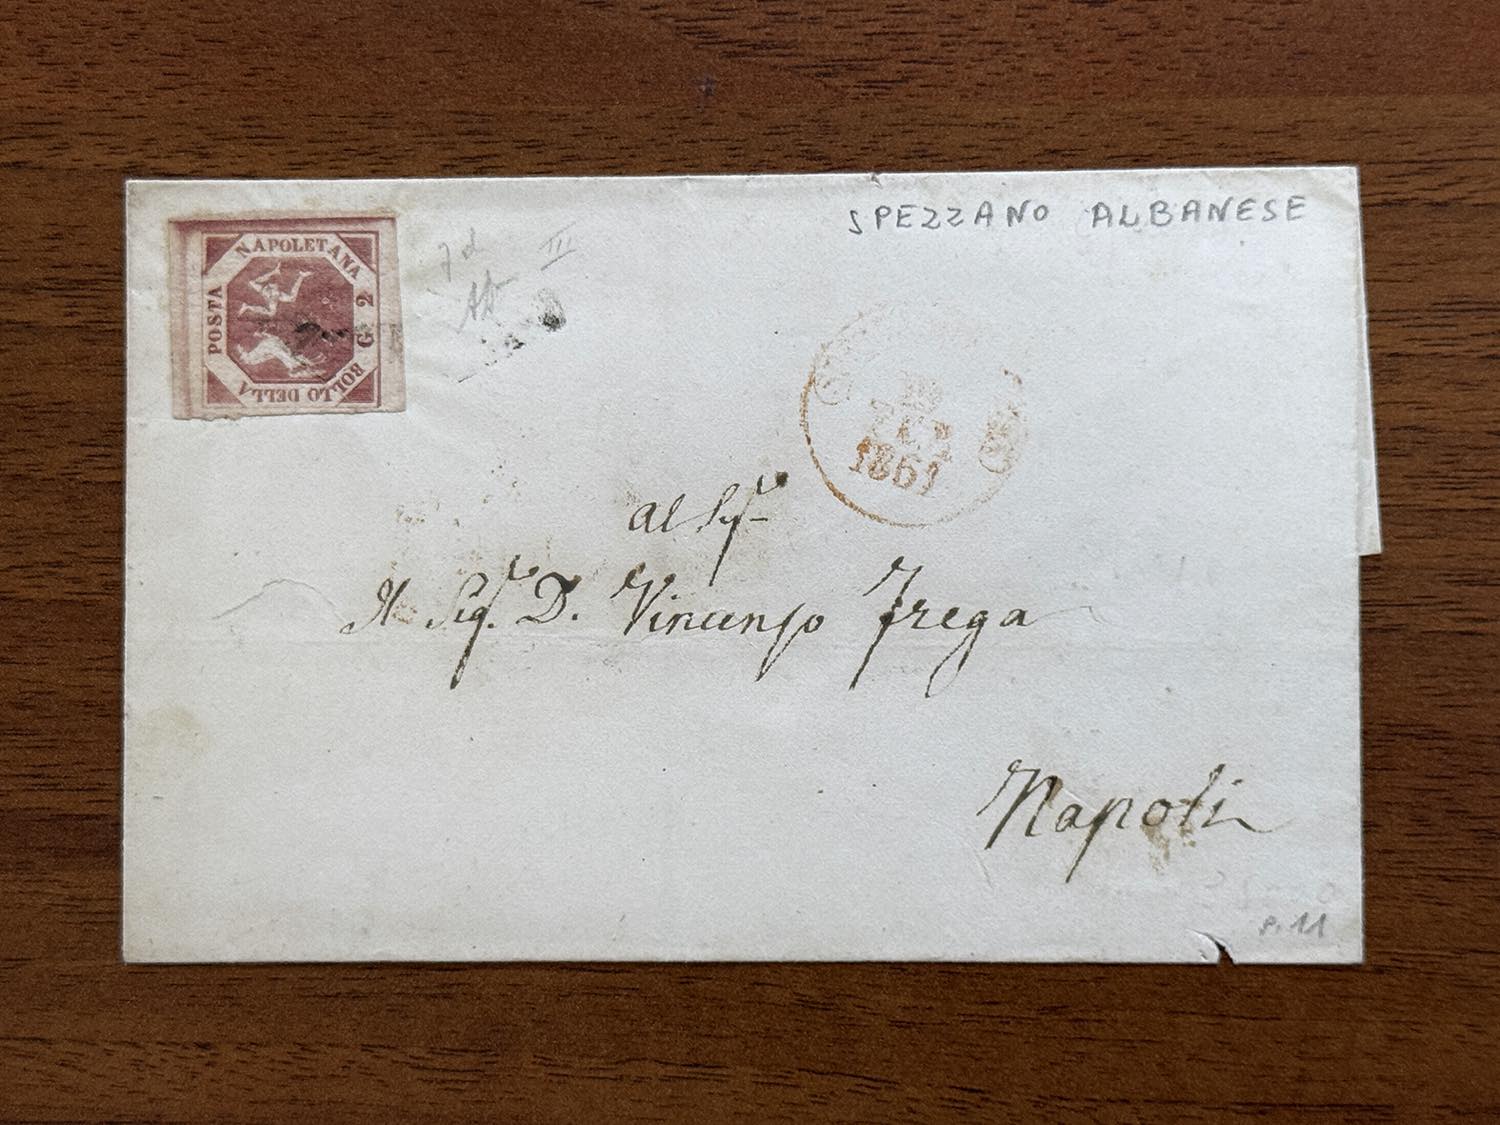 SPEZZANO ALBANESE
POSTA NAPOLETANA G. 2 BOLLO DELLA
III
1861
Al
Il Sig.r D. Vincenzo Frega
Napoli
P. 11